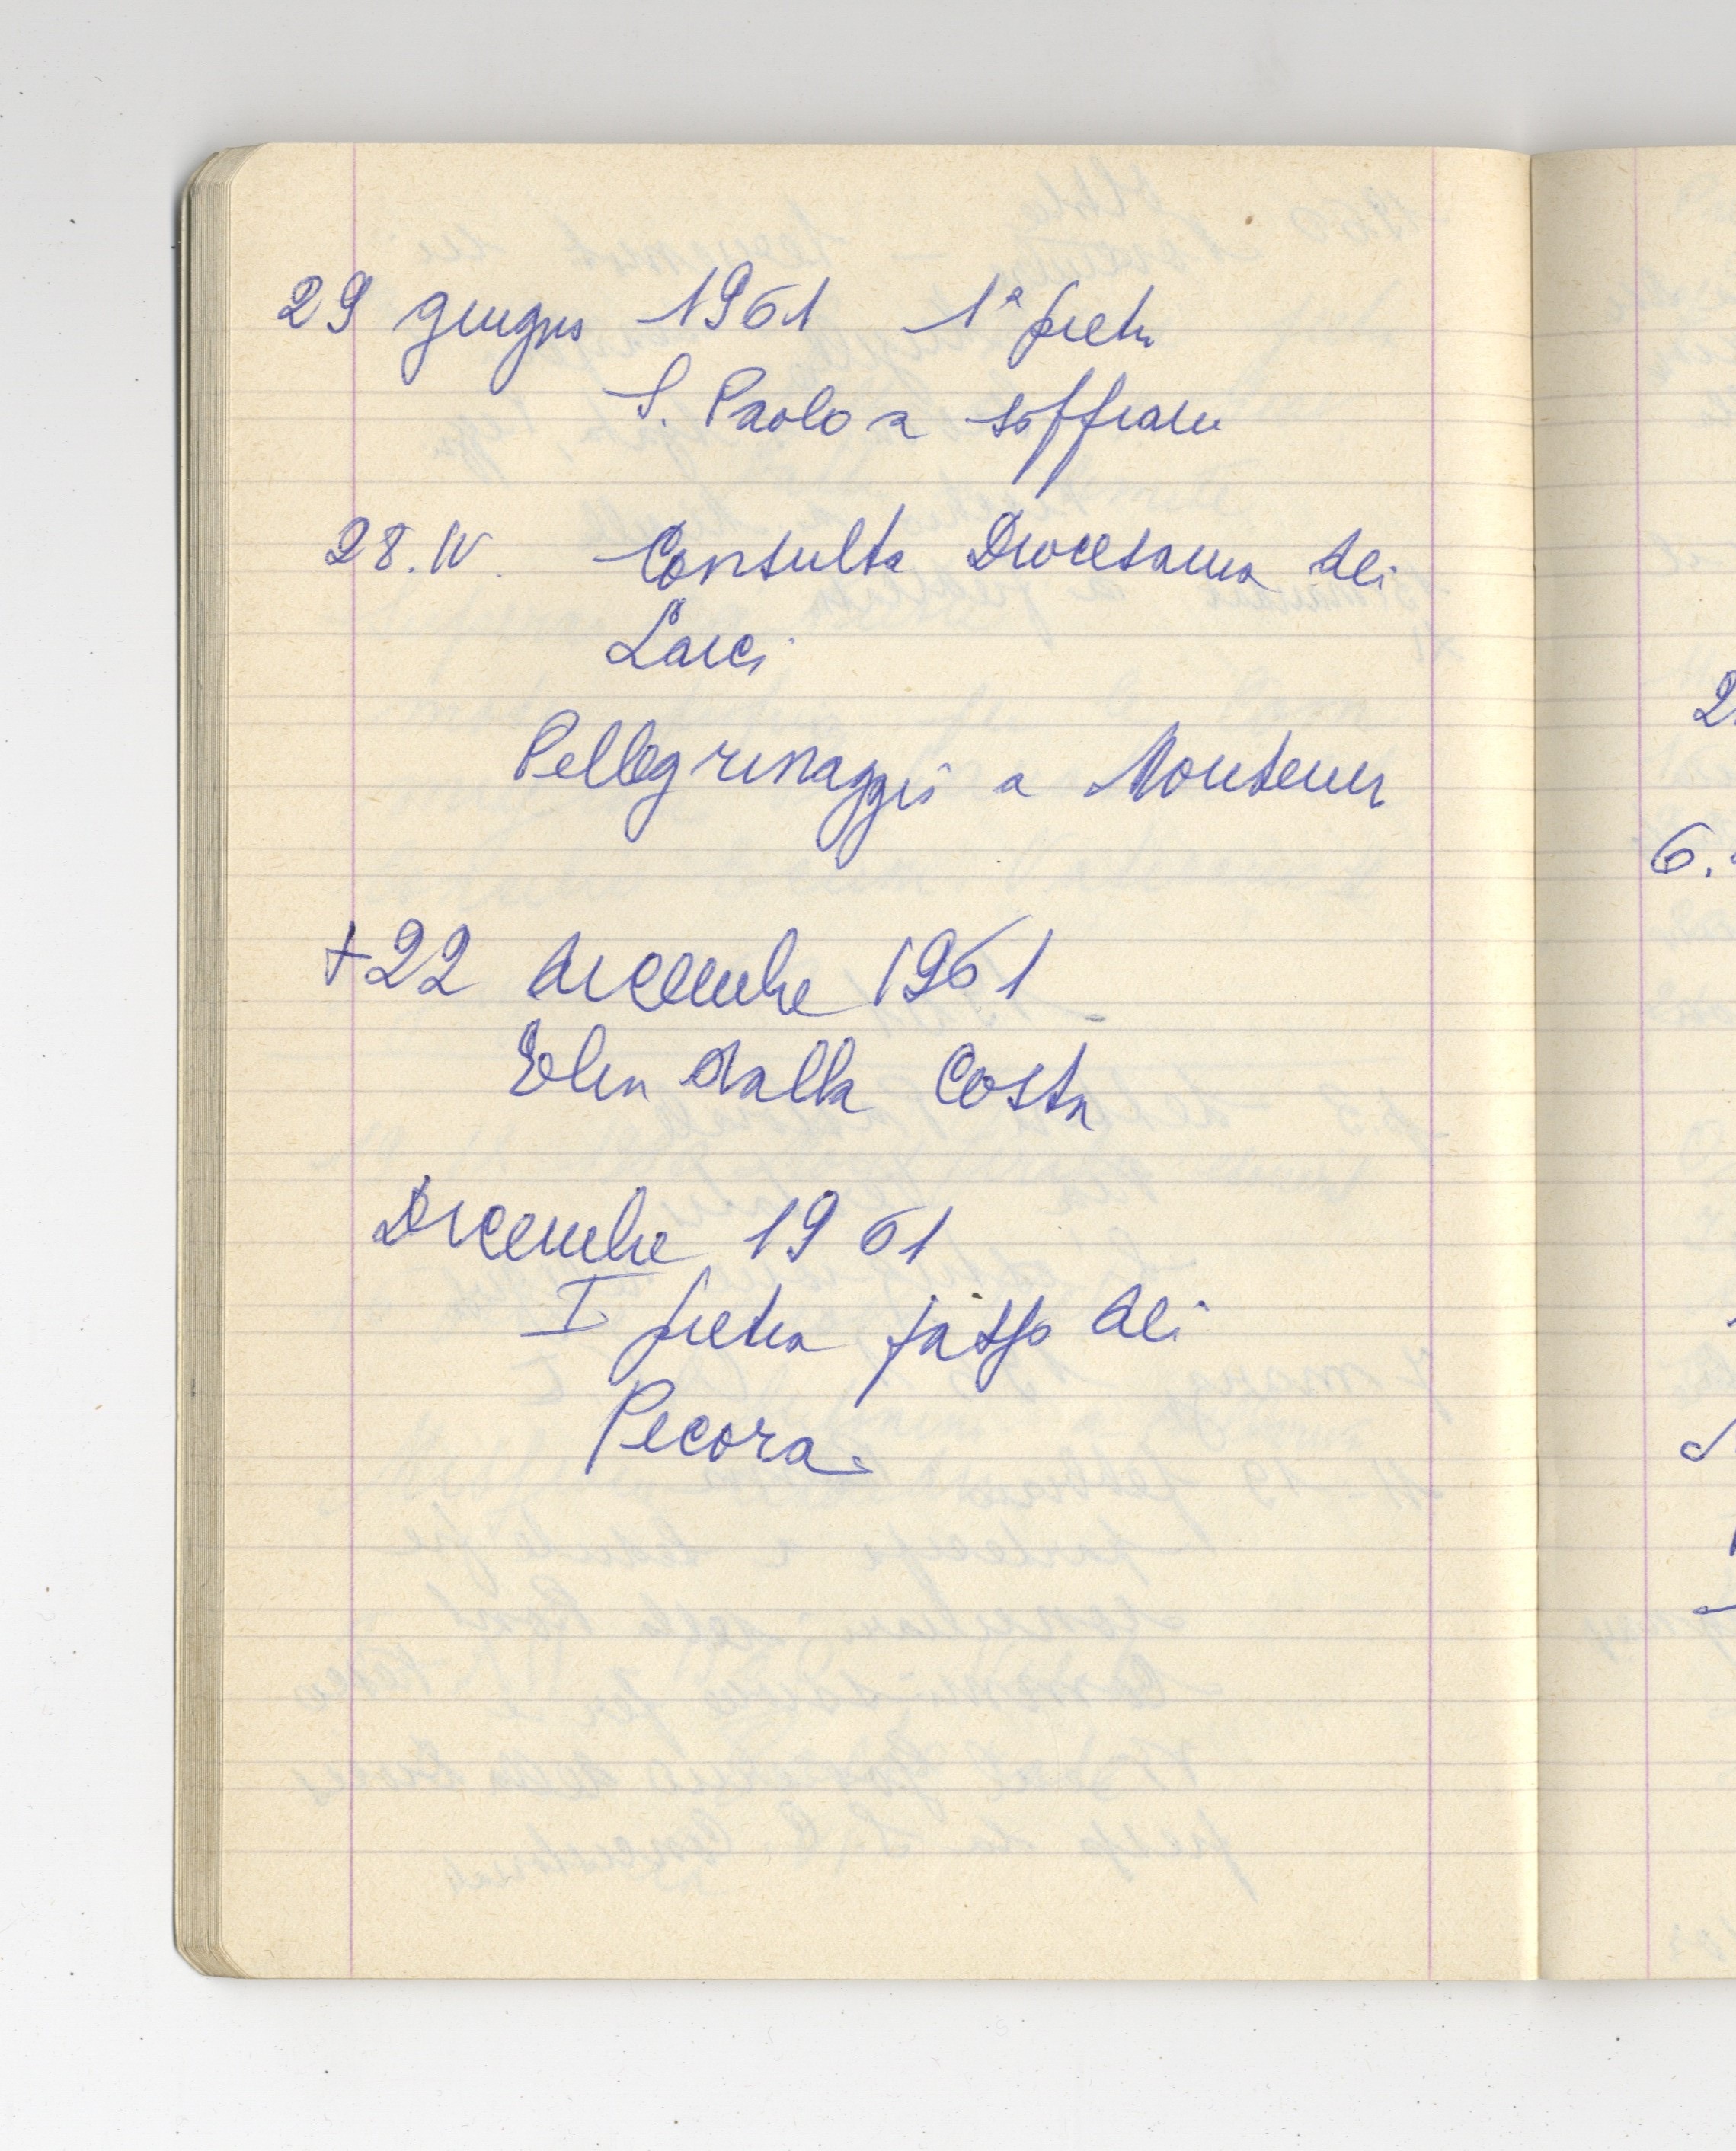 29 giugno 1961 1ª pietra
S. Paolo a Soffiano
28.IV. Consulta Diocesana dei
Laici
Pellegrinaggio a Montenero
+22 dicembre 1961
Elia dalla Costa
Dicembre 1961
I pietra passo dei
Pecorai
2
6.